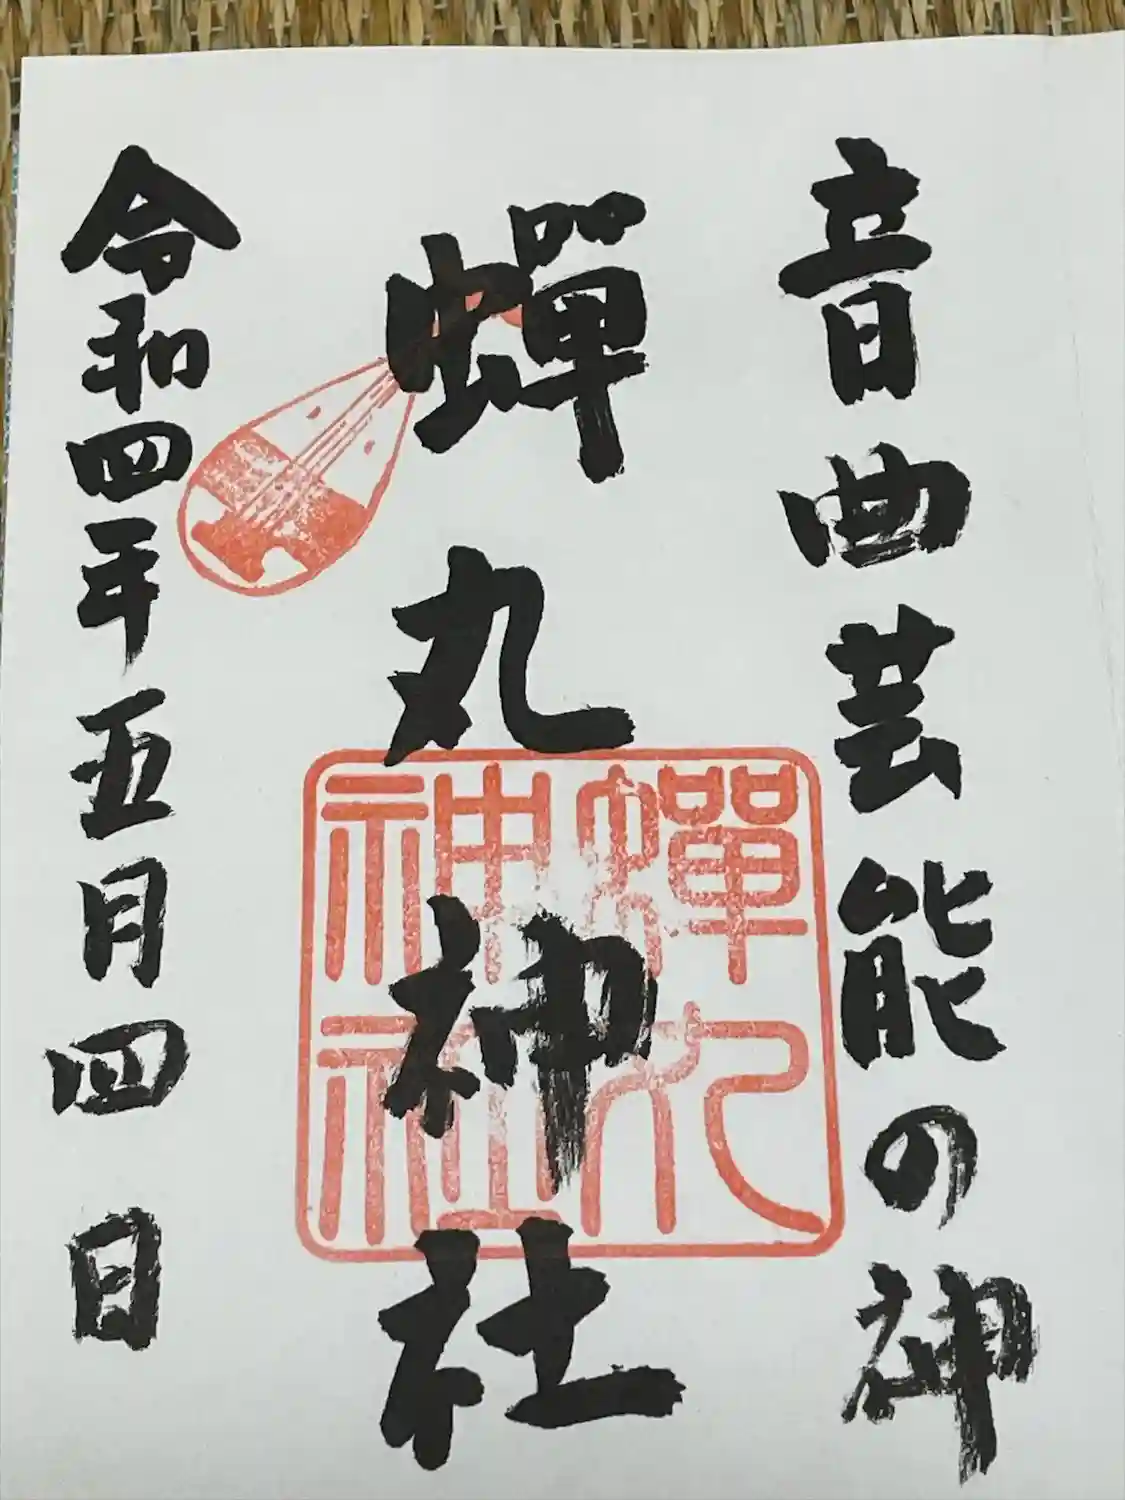 音曲芸能の神
蝉丸神社
蟬丸
神社
令和四年五月四日